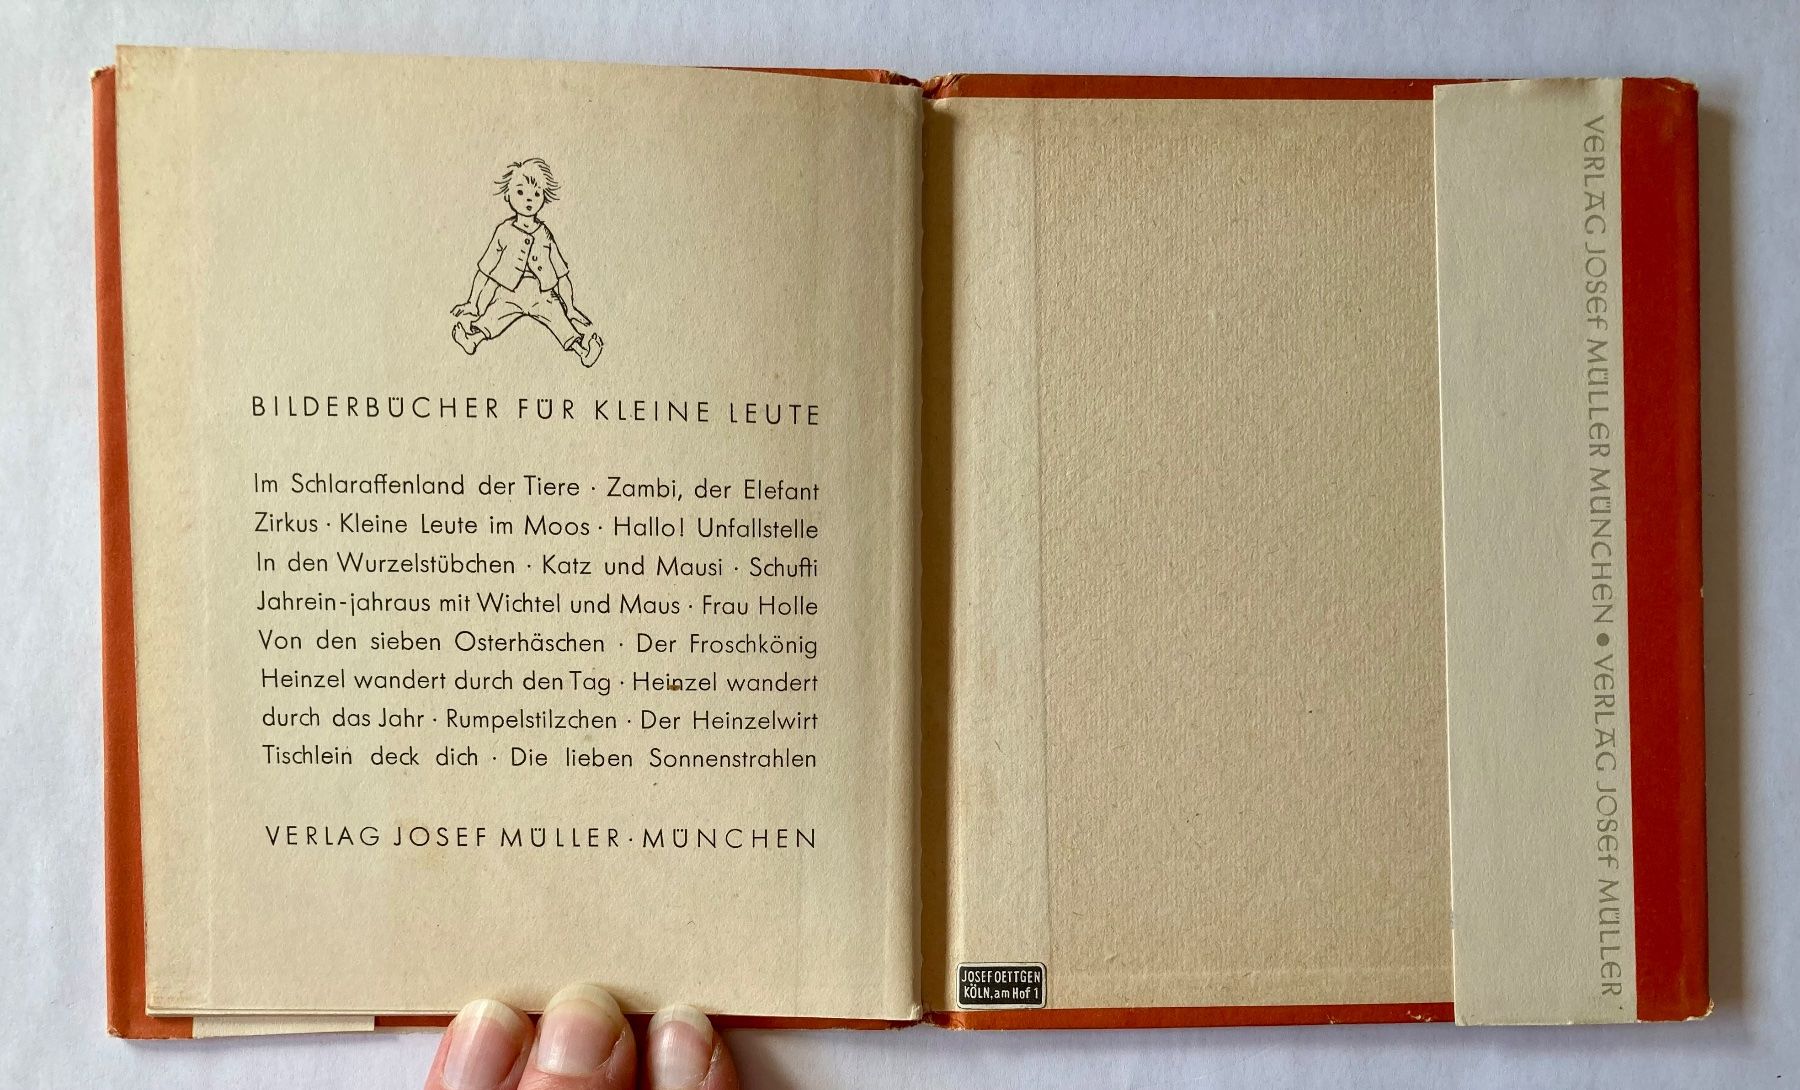 BILDERBÜCHER FÜR KLEINE LEUTE
Im Schlaraffenland der Tiere · Zambi, der Elefant
Zirkus · Kleine Leute im Moos · Hallo! Unfallstelle
In den Wurzelstübchen · Katz und Mausi · Schufti
Jahrein-jahraus mit Wichtel und Maus · Frau Holle
Von den sieben Osterhäschen · Der Froschkönig
Heinzel wandert durch den Tag · Heinzel wandert
durch das Jahr · Rumpelstilzchen · Der Heinzelwirt
Tischlein deck dich · Die lieben Sonnenstrahlen
VERLAG JOSEF MÜLLER · MÜNCHEN
JOSEF OETTGEN
KÖLN, am Hof 1
VERLAG JOSEF MÜLLER MÜNCHEN • VERLAG JOSEF MÜLLER